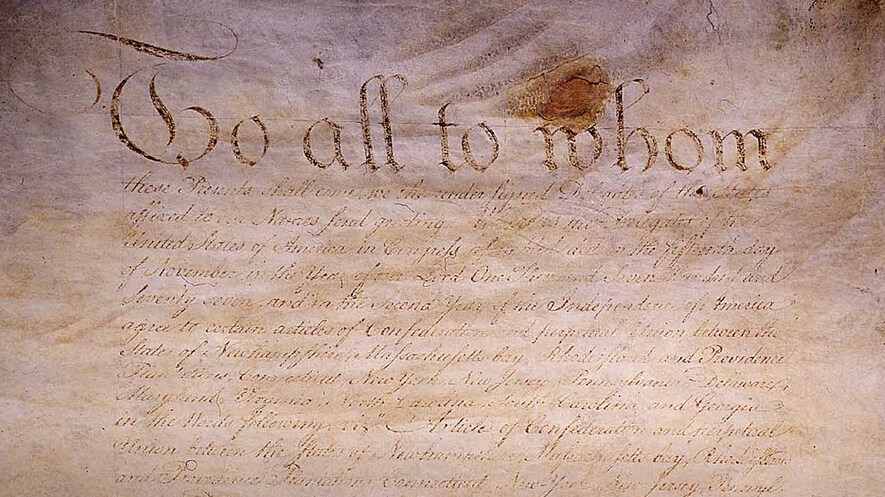 To all to whom
these Presents shall come, we the under signed Delegates of the States
affixed to our Names send greeting. Whereas the Delegates of the
United States of America in Congress assembled did on the fifteenth day
of November in the Year of our Lord One Thousand Seven Hundred and
Seventy seven, and in the Second Year of the Independence of America
agree to certain articles of Confederation and perpetual Union between the
States of Newhampshire, Massachusetts-bay, Rhodeisland and Providence
Plantations, Connecticut, New York, New Jersey, Pennsylvania, Delaware,
Maryland, Virginia, North-Carolina, South-Carolina, and Georgia
in the Words following, viz. "Articles of Confederation and perpetual
Union between the States of Newhampshire, Massachusetts-bay, Rhodeisland
and Providence Plantations, Connecticut, New-York, New-Jersey, Pennsyl